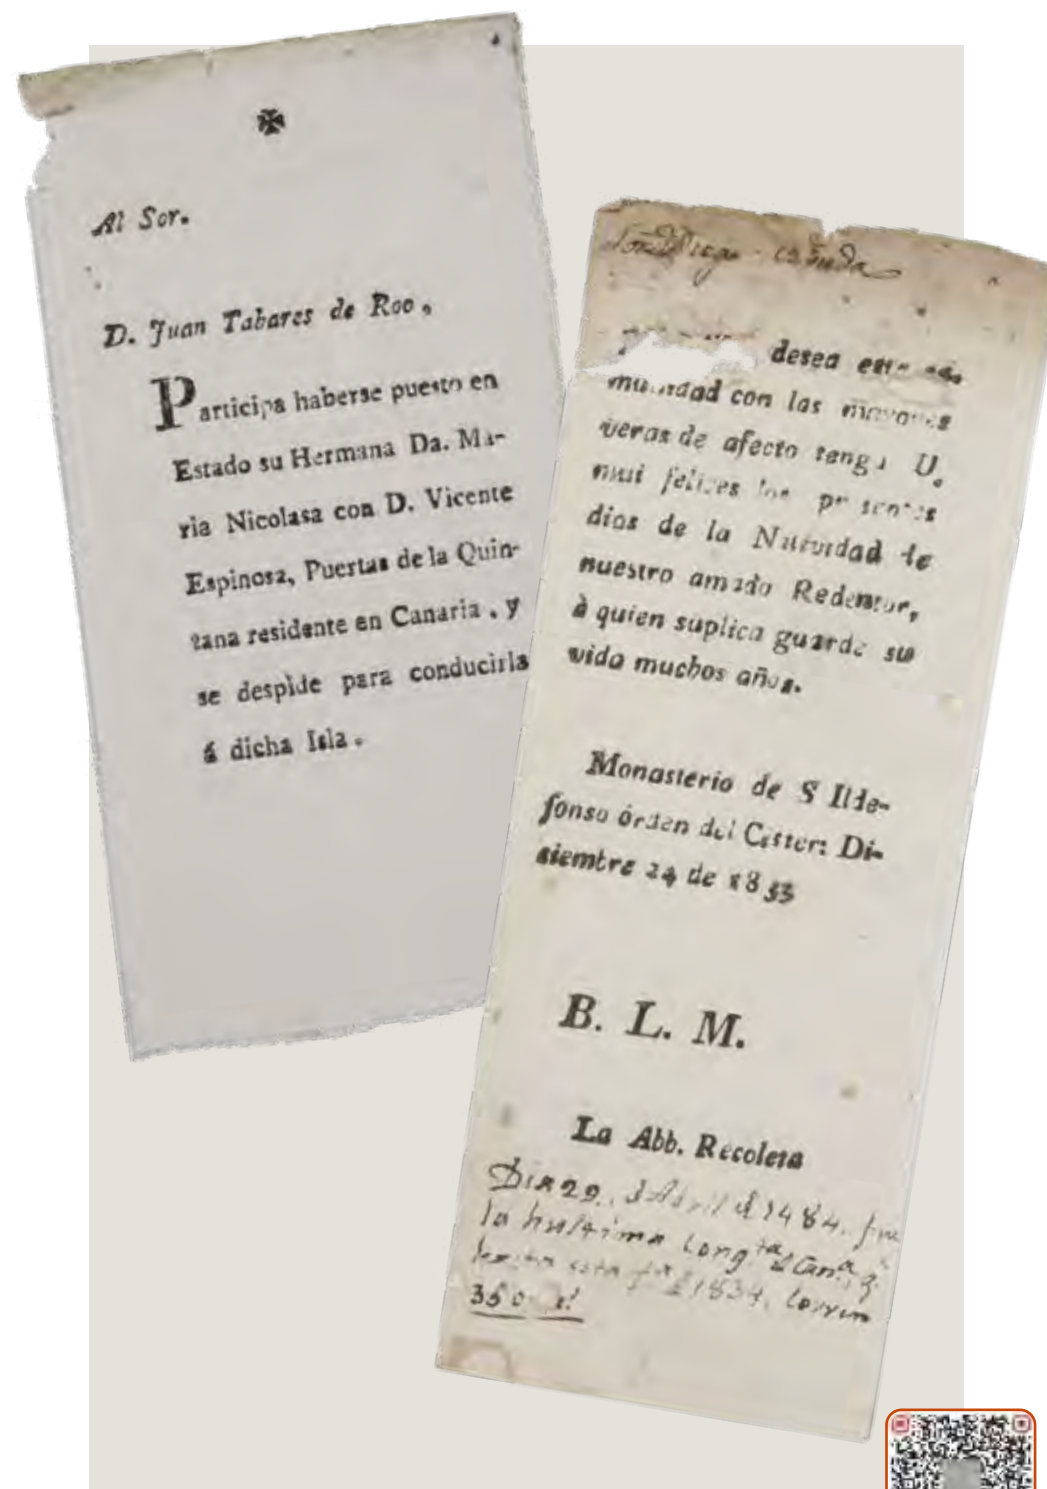 Al Sor.
D. Juan Tabares de Roo.
Participa haberse puesto en
Estado su Hermana Da. Ma-
ria Nicolasa con D. Vicente
Espinosa, Puertas de la Quin-
tana residente en Canaria. y
se despide para conducirla
á dicha Isla.
desea esta
munidad con las mayores
veras de afecto tenga U.
mui felizes los presentes
dias de la Natividad de
nuestro amado Redentor,
à quien suplica guarde su
vida muchos años.
Monasterio de S Ilde-
fonso órden del Cister: Di-
siembre 24 de 1833
B. L. M.
La Abb. Recoleta
Dia 29. d Abril d 1484. fue
la hultima
esta 1834.
350